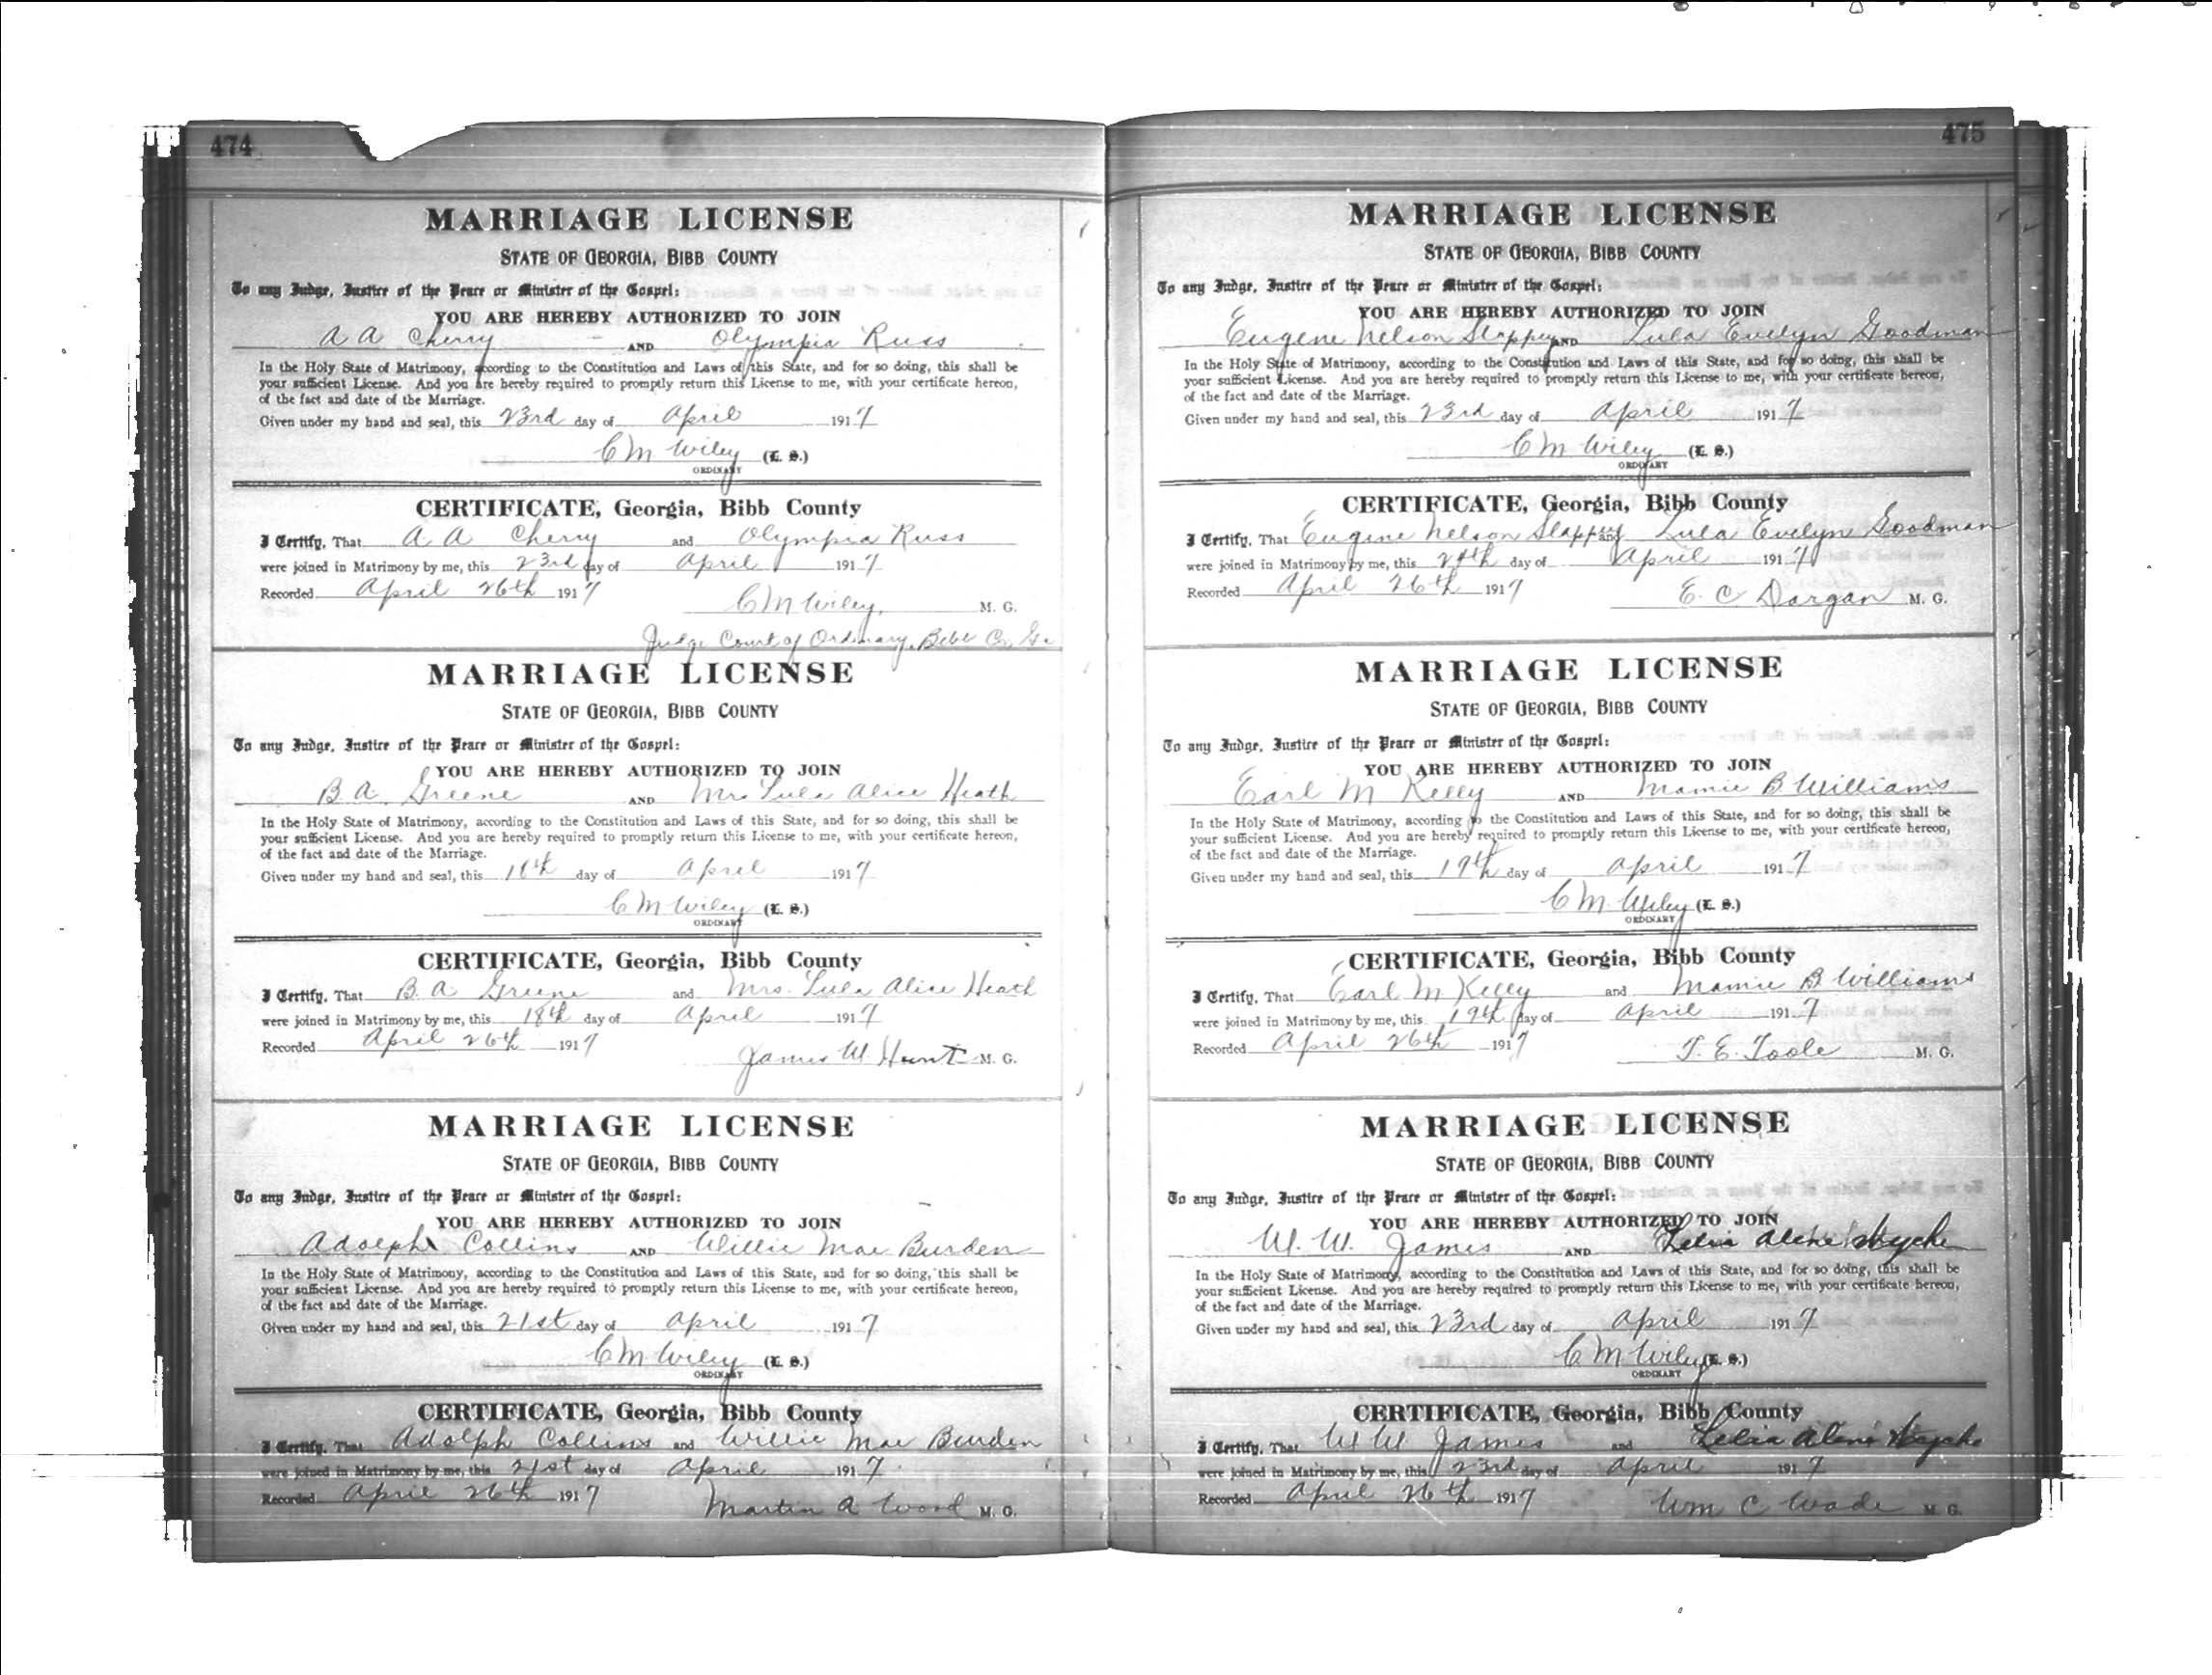 474
MARRIAGE LICENSE
STATE OF GEORGIA, BIBB COUNTY
To any Judge, Justice of the Peace or Minister of the Gospel:
YOU ARE HEREBY AUTHORIZED TO JOIN
A A Cherry AND Olympia Russ
In the Holy State of Matrimony, according to the Constitution and Laws of this State, and for so doing, this shall be
your sufficient License. And you are hereby required to promptly return this License to me, with your certificate hereon,
of the fact and date of the Marriage.
Given under my hand and seal, this 23rd day of April 1917
C M Wiley (L. S.)
ORDINARY
CERTIFICATE, Georgia, Bibb County
I Certify, That A A Cherry and Olympia Russ
were joined in Matrimony by me, this 23rd day of April 1917
Recorded April 26th 1917
C M Wiley, M. G.
Judge Court of Ordinary, Bibb Co, Ga
MARRIAGE LICENSE
STATE OF GEORGIA, BIBB COUNTY
To any Judge, Justice of the Peace or Minister of the Gospel:
YOU ARE HEREBY AUTHORIZED TO JOIN
B A Greene AND Mrs Lula Alice Heath
In the Holy State of Matrimony, according to the Constitution and Laws of this State, and for so doing, this shall be
your sufficient License. And you are hereby required to promptly return this License to me, with your certificate hereon,
of the fact and date of the Marriage.
Given under my hand and seal, this day of April 1917
C M Wiley (L. S.)
ORDINARY
CERTIFICATE, Georgia, Bibb County
I Certify, That B. A Greene and Mrs. Lula Alice Heath
were joined in Matrimony by me, this 18th day of April 1917
Recorded April 26th 1917
James W Hunt M. G.
MARRIAGE LICENSE
STATE OF GEORGIA, BIBB COUNTY
To any Judge, Justice of the Peace or Minister of the Gospel:
YOU ARE HEREBY AUTHORIZED TO JOIN
Adolph Collins AND Willie Mae Burden
In the Holy State of Matrimony, according to the Constitution and Laws of this State, and for so doing, this shall be
your sufficient License. And you are hereby required to promptly return this License to me, with your certificate hereon,
of the fact and date of the Marriage.
Given under my hand and seal, this 21st day of April 1917
C M Wiley (L. S.)
ORDINARY
CERTIFICATE, Georgia, Bibb County
I Certify, That Adolph Collins and Willie Mae Burden
were joined in Matrimony by me, this 21st day of April 1917
Recorded April 26th 1917
Martin A Wood M. G.
475
MARRIAGE LICENSE
STATE OF GEORGIA, BIBB COUNTY
To any Judge, Justice of the Peace or Minister of the Gospel:
YOU ARE HEREBY AUTHORIZED TO JOIN
Eugene Nelson Slappey AND Lula Evelyn Goodman
In the Holy State of Matrimony, according to the Constitution and Laws of this State, and for so doing, this shall be
your sufficient License. And you are hereby required to promptly return this License to me, with your certificate hereon,
of the fact and date of the Marriage.
Given under my hand and seal, this 23rd day of April 1917
C M Wiley (L. S.)
ORDINARY
CERTIFICATE, Georgia, Bibb County
I Certify, That Eugene Nelson Slappey and Lula Evelyn Goodman
were joined in Matrimony by me, this 24th day of April 1917
Recorded April 26th 1917
E. C Dargan M. G.
MARRIAGE LICENSE
STATE OF GEORGIA, BIBB COUNTY
To any Judge, Justice of the Peace or Minister of the Gospel:
YOU ARE HEREBY AUTHORIZED TO JOIN
Earl M Kelly AND Mamie B Williams
In the Holy State of Matrimony, according to the Constitution and Laws of this State, and for so doing, this shall be
your sufficient License. And you are hereby required to promptly return this License to me, with your certificate hereon,
of the fact and date of the Marriage.
Given under my hand and seal, this 19th day of April 1917
C M Wiley (L. S.)
ORDINARY
CERTIFICATE, Georgia, Bibb County
I Certify, That Earl M Kelly and Mamie B Williams
were joined in Matrimony by me, this 19th day of April 1917
Recorded April 26th 1917
T. E. Toole M. G.
MARRIAGE LICENSE
STATE OF GEORGIA, BIBB COUNTY
To any Judge, Justice of the Peace or Minister of the Gospel:
YOU ARE HEREBY AUTHORIZED TO JOIN
W. W. James AND Lelia Alene Wyche
In the Holy State of Matrimony, according to the Constitution and Laws of this State, and for so doing, this shall be
your sufficient License. And you are hereby required to promptly return this License to me, with your certificate hereon,
of the fact and date of the Marriage.
Given under my hand and seal, this 23rd day of April 1917
C M Wiley (L. S.)
ORDINARY
CERTIFICATE, Georgia, Bibb County
I Certify, That W W James and Lelia Alene Wyche
were joined in Matrimony by me, this 23rd day of April 1917
Recorded April 26th 1917
Wm C Wade M. G.